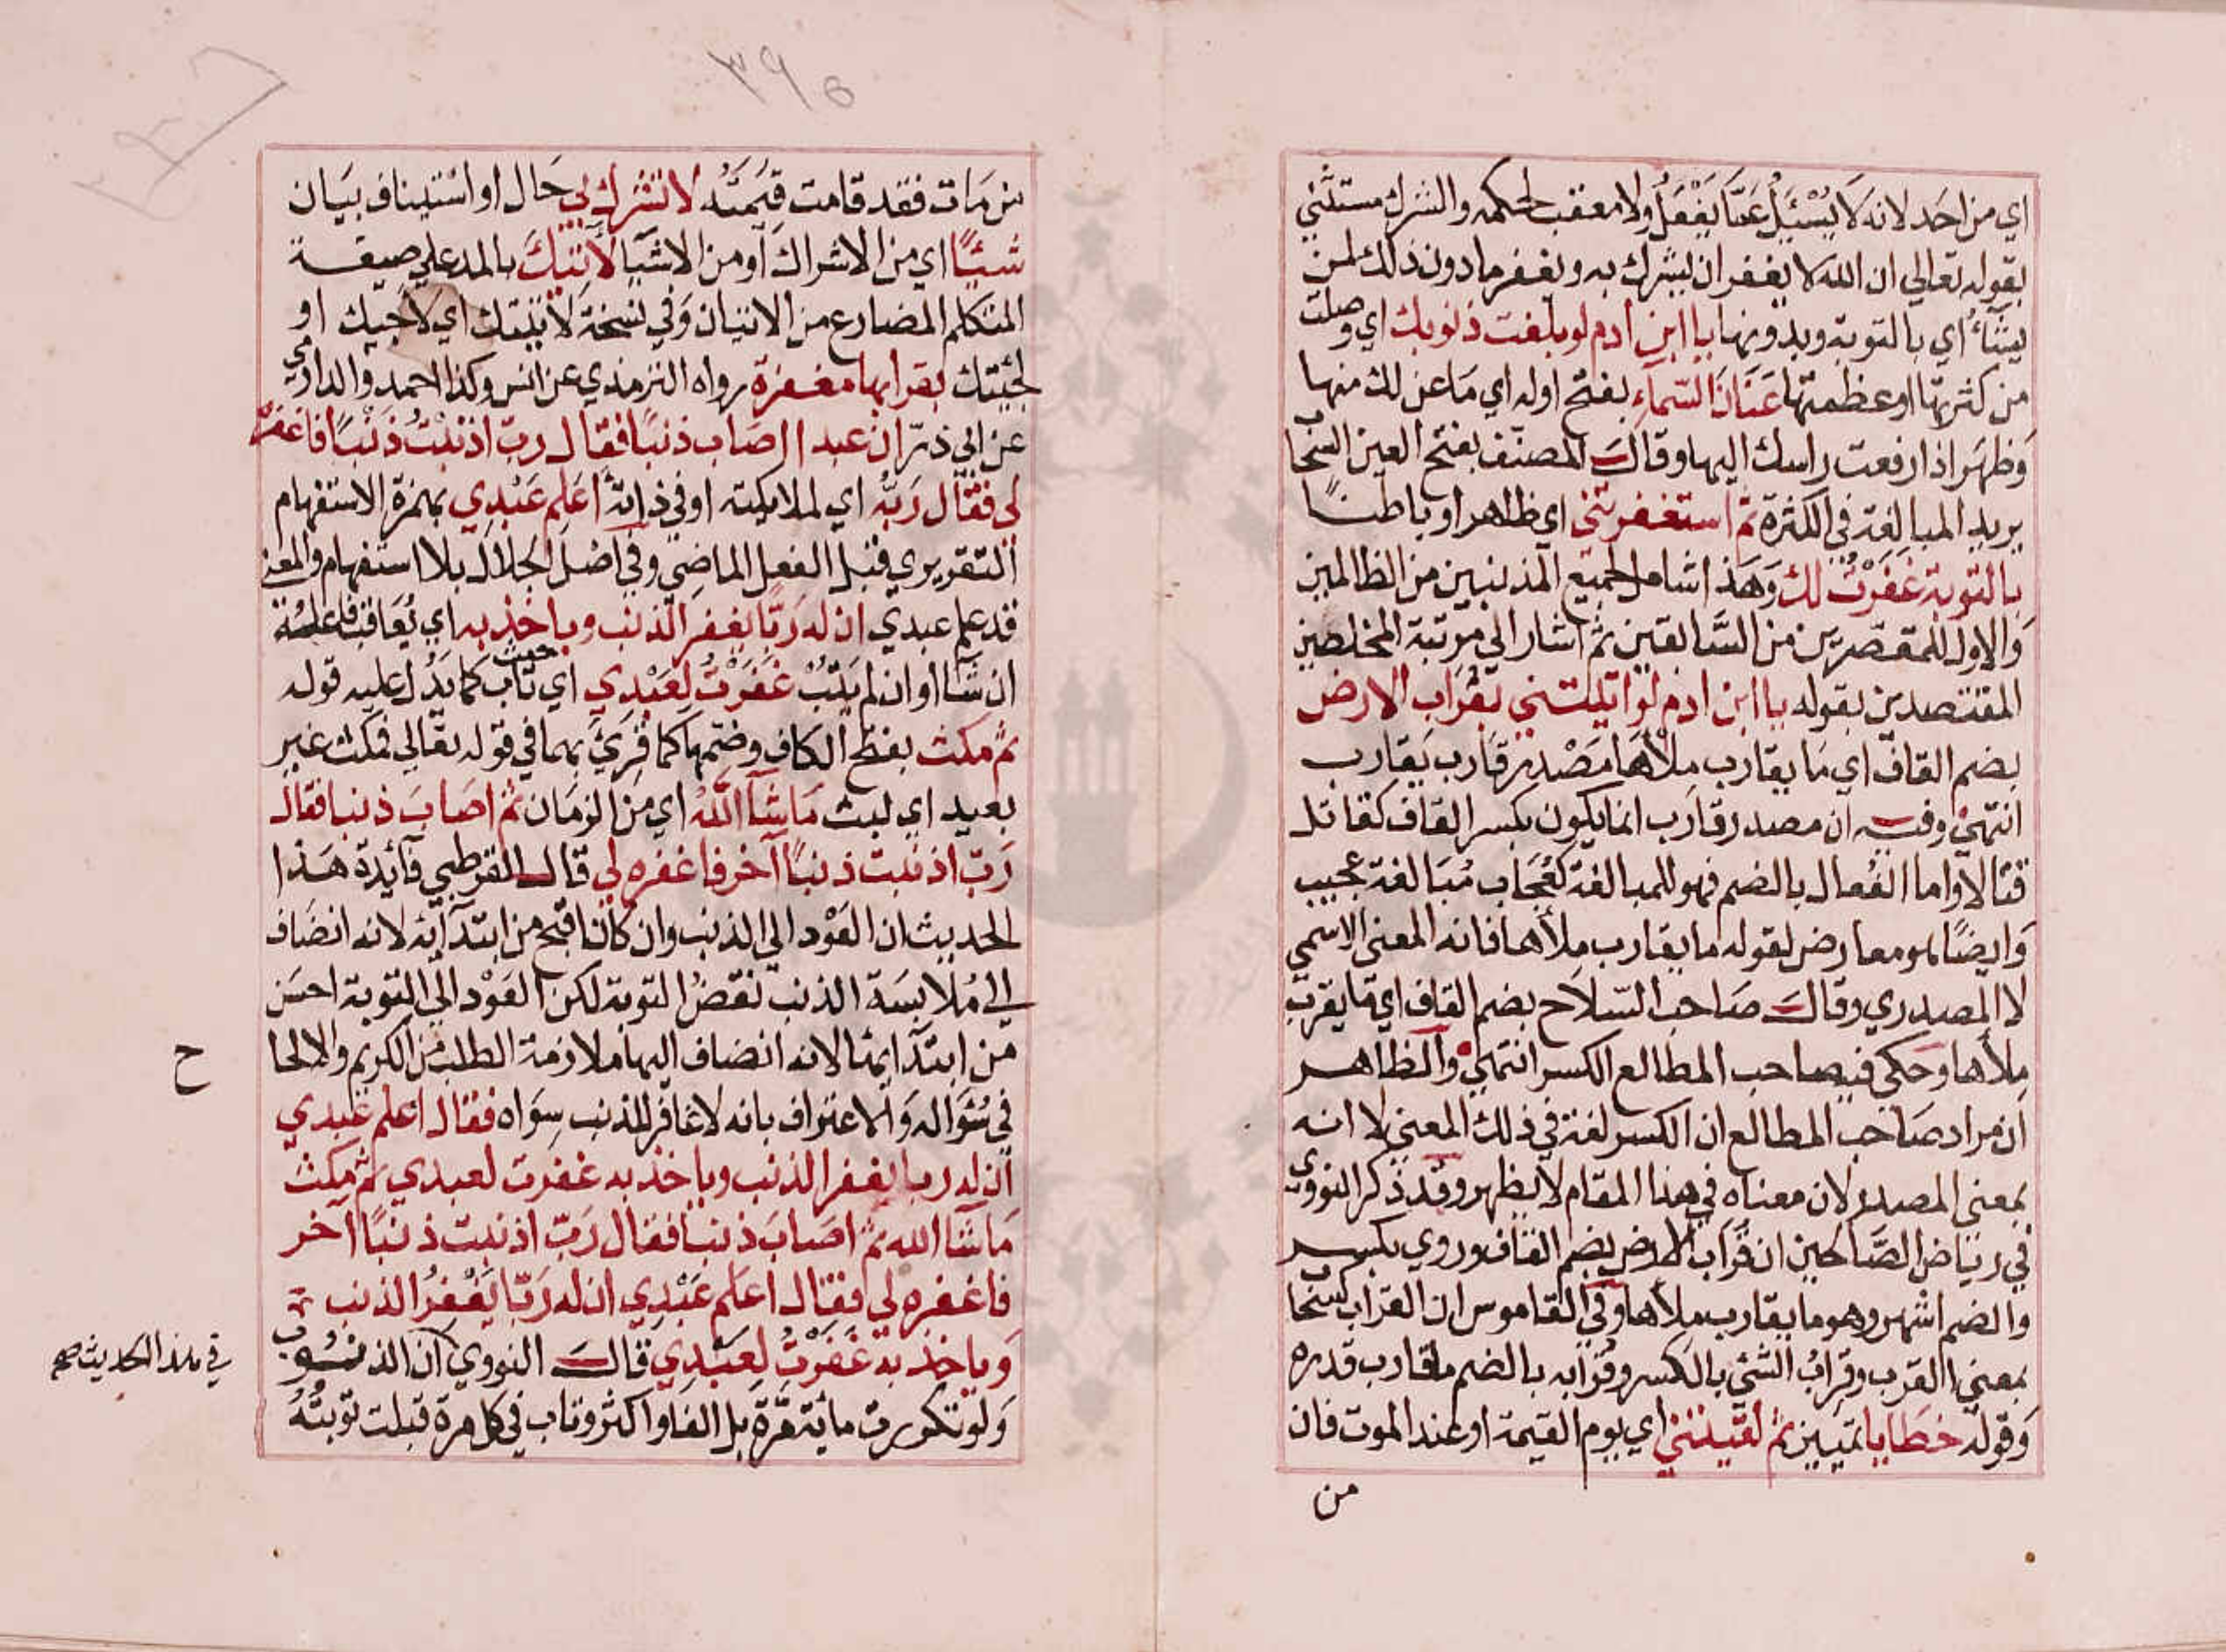 اي من احد لانه لَا يُسْئَلُ عَمَّا يَفْعَلُ ولا معقب لحكمه والشرك مستثني
بقوله تعالي ان الله لا يغفر ان يشرك به ويغفر ما دون ذلك لمن
يشاءُ اي بالتوبة وبدونها يا ابن ادم لو بلغت ذنوبك اي وصلت
من كثرتها او عظمتها عَنَانَ السّماءِ بفتح اوله اي مَا عن لك منها
وَظهَر اذا رفعت راسك اليها وقال المصنف بفتح العين السحاب
يريد المبالغة في الكثرة ثم استغفرتني اي ظاهرا وباطنًا
بالتوبة غَفَرْتُ لك وَهَذا شامل لجميع المذنبين من الظالمين
وَالاول للمقصّرين من السَّابقين ثم اشار الي مرتبة المخلصين
المقتصدين بقوله يا ابن ادم لو اتيتني بقُراب الارض
بضم القاف اي مَا يقارب مِلْأهَا مَصْدر قَارب يَقارب
انتهي وفيه ان مصدر قارب انما يكون بكسر القاف كقاتل
قتالا واما الفُعال بالضم فهو للمبالغة كعُجَاب مُبَالغة عجيب
وَايضًا هو معارض لقوله ما يقارب مِلأها فانه المعني الاسمي
لا المصدري وقال صَاحب السّلاح بضم القاف اي ما يقرب
مِلأها وحكي فيه صاحب المطالع الكسر انتهي والظاهر
ان مراد صَاحب المطالع ان الكسر لغة في ذلك المعني لا انه
بمعني المصدر لان معناه في هذا المقام لا يظهر وقد ذكر النووي
في رياض الصَّالحين ان قُراب الارض بضم القاف وروي بكسر
والضم اشهر وهو ما يقارب مِلأها وفي القاموس ان القراب كسحاب
بمعني القرب وقرابُ الشئي بالكسر وقُرابه بالضم ما قارب قدره
وَقوله خطايا تمييز ثم لقيتني اي يوم القيمة او عند الموت فان
من
٣٩٥
من مَات فقد قامت قيمَتُه لا تشرك بي حَال او استيناف بيَان
شيئًا اي من الاشراك أو من الاشيَا لَأتيْتك بالمد علي صيغة
المتكلم المضارع من الاتيان وَفي نسخة لأتيتك اي لاجيك او
لجئتك بقرابها مغفرة رواه الترمذي عن انس وكذا احمد والدارمي
عن ابي ذرّ ان عبدا اصَاب ذنبًا فقال ربّ اذنبْتُ ذَنْبًا فاغفره
لي فقال رَبُّه اي لملايكته او في ذاته أعَلِم عَبْدِي بهمزة الاستفهام
التقريري قبل الفعل الماضي وفي اصْل الجلال بلا استفهام والمعني
قد علم عبدي ان له رَبًّا يغفر الذنب وياخذ به اي يُعَاقب فاعله
ان شَا او ان لم يَتُبْ غَفَرْتُ لِعَبْدِي اي حيث تاب كما يَدُل عليه قوله
ثم مكث بفتح الكاف وضمّها كما قُرِيَ بهما في قوله تعَالي فمكث غير
بعيد اي لبث مَا شَآ اللّهُ اي من الزمَان ثم اصَابَ ذنبا فقال
رَبّ اذنبت ذنبًا آخر فاغفره لي قال القرطبي فآئدة هَذا
الحديث ان العَوْد الي الذنب وان كان اقبح من ابتدآئه لانه انضَاف
الي مُلابسَة الذنب نقضُ التوبة لكن العَوْد الي التوبة احسَن
من ابتدآيها لانه انضاف اليها ملازمة الطلب من الكريم والالحا
ح
في سُؤاله وَالاعتراف بانه لا غافر للذنب سِوَاه فقال اعلم عَبدي
ان له ربا يغفر الذنب وياخذ به غفرت لعبدي ثم مكث
مَا شآ الله ثم اصَابَ ذنبا فقال رَبّ اذنبت ذنبًا آخر
فاغفره لي فقال اعَلم عَبْدِي ان له رَبّا يَغْفِرُ الذنب
وَياخذ به غَفَرْتُ لِعَبْدِي قال النووي ان الذنوب
في هذا الحديث صح
وَلو تكررت مائة مَرَّة بل الفا واكثر وتاب في كل مرة قبلت توبتُهُ